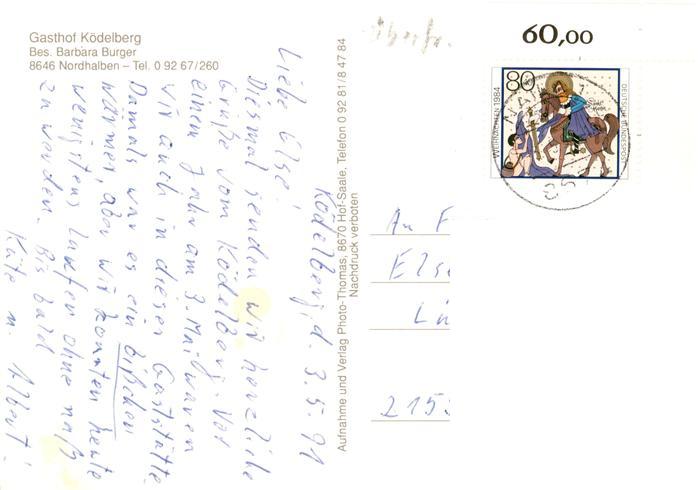 Gasthof Ködelberg
Bes. Barbara Burger
8646 Nordhalben – Tel. 0 92 67/260
Ködelberg, d. 3.5.91
Liebe Else!
Diesmal senden wir herzliche
Grüße vom Ködelberg. Vor
einem Jahr am 3. Mai waren
wir auch in dieser Gaststätte.
Damals war es ein bißchen
wärmer, aber wir konnten heute
wenigstens laufen ohne naß
zu werden. Bis bald
Käte u. Albert!
Aufnahme und Verlag Photo-Thomas, 8670 Hof-Saale, Telefon 0 92 81/8 47 84
Nachdruck verboten
60,00
80
WEIHNACHTEN 1984
DEUTSCHE BUNDESPOST
An F
Else
Lü
215